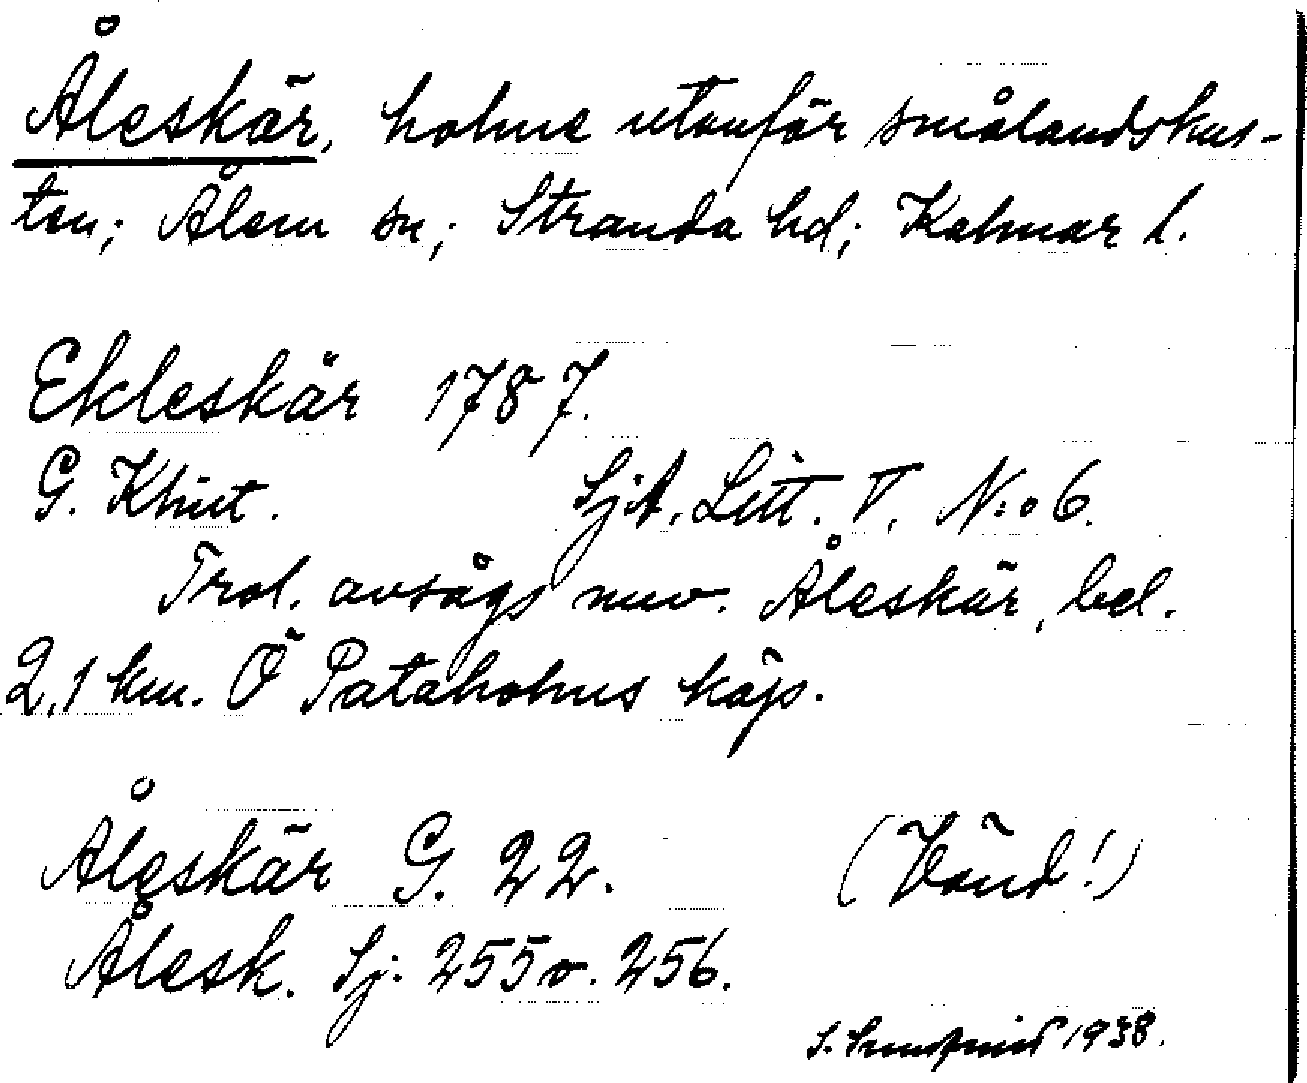 Åleskär, holme utanför smålandskus-
ten; Ålem sn; Stranda hd; Kalmar l.
Ekleskär 1787.
G. Klint. SjA. Litt. V. N:o 6.
Trol. avsågs nuv. Åleskär, bel.
2,1 km. Ö Pataholms köp.
Åleskär G. 22. (Vänd!)
Ålesk. Sj. 255 o. 256.
S. 1938.